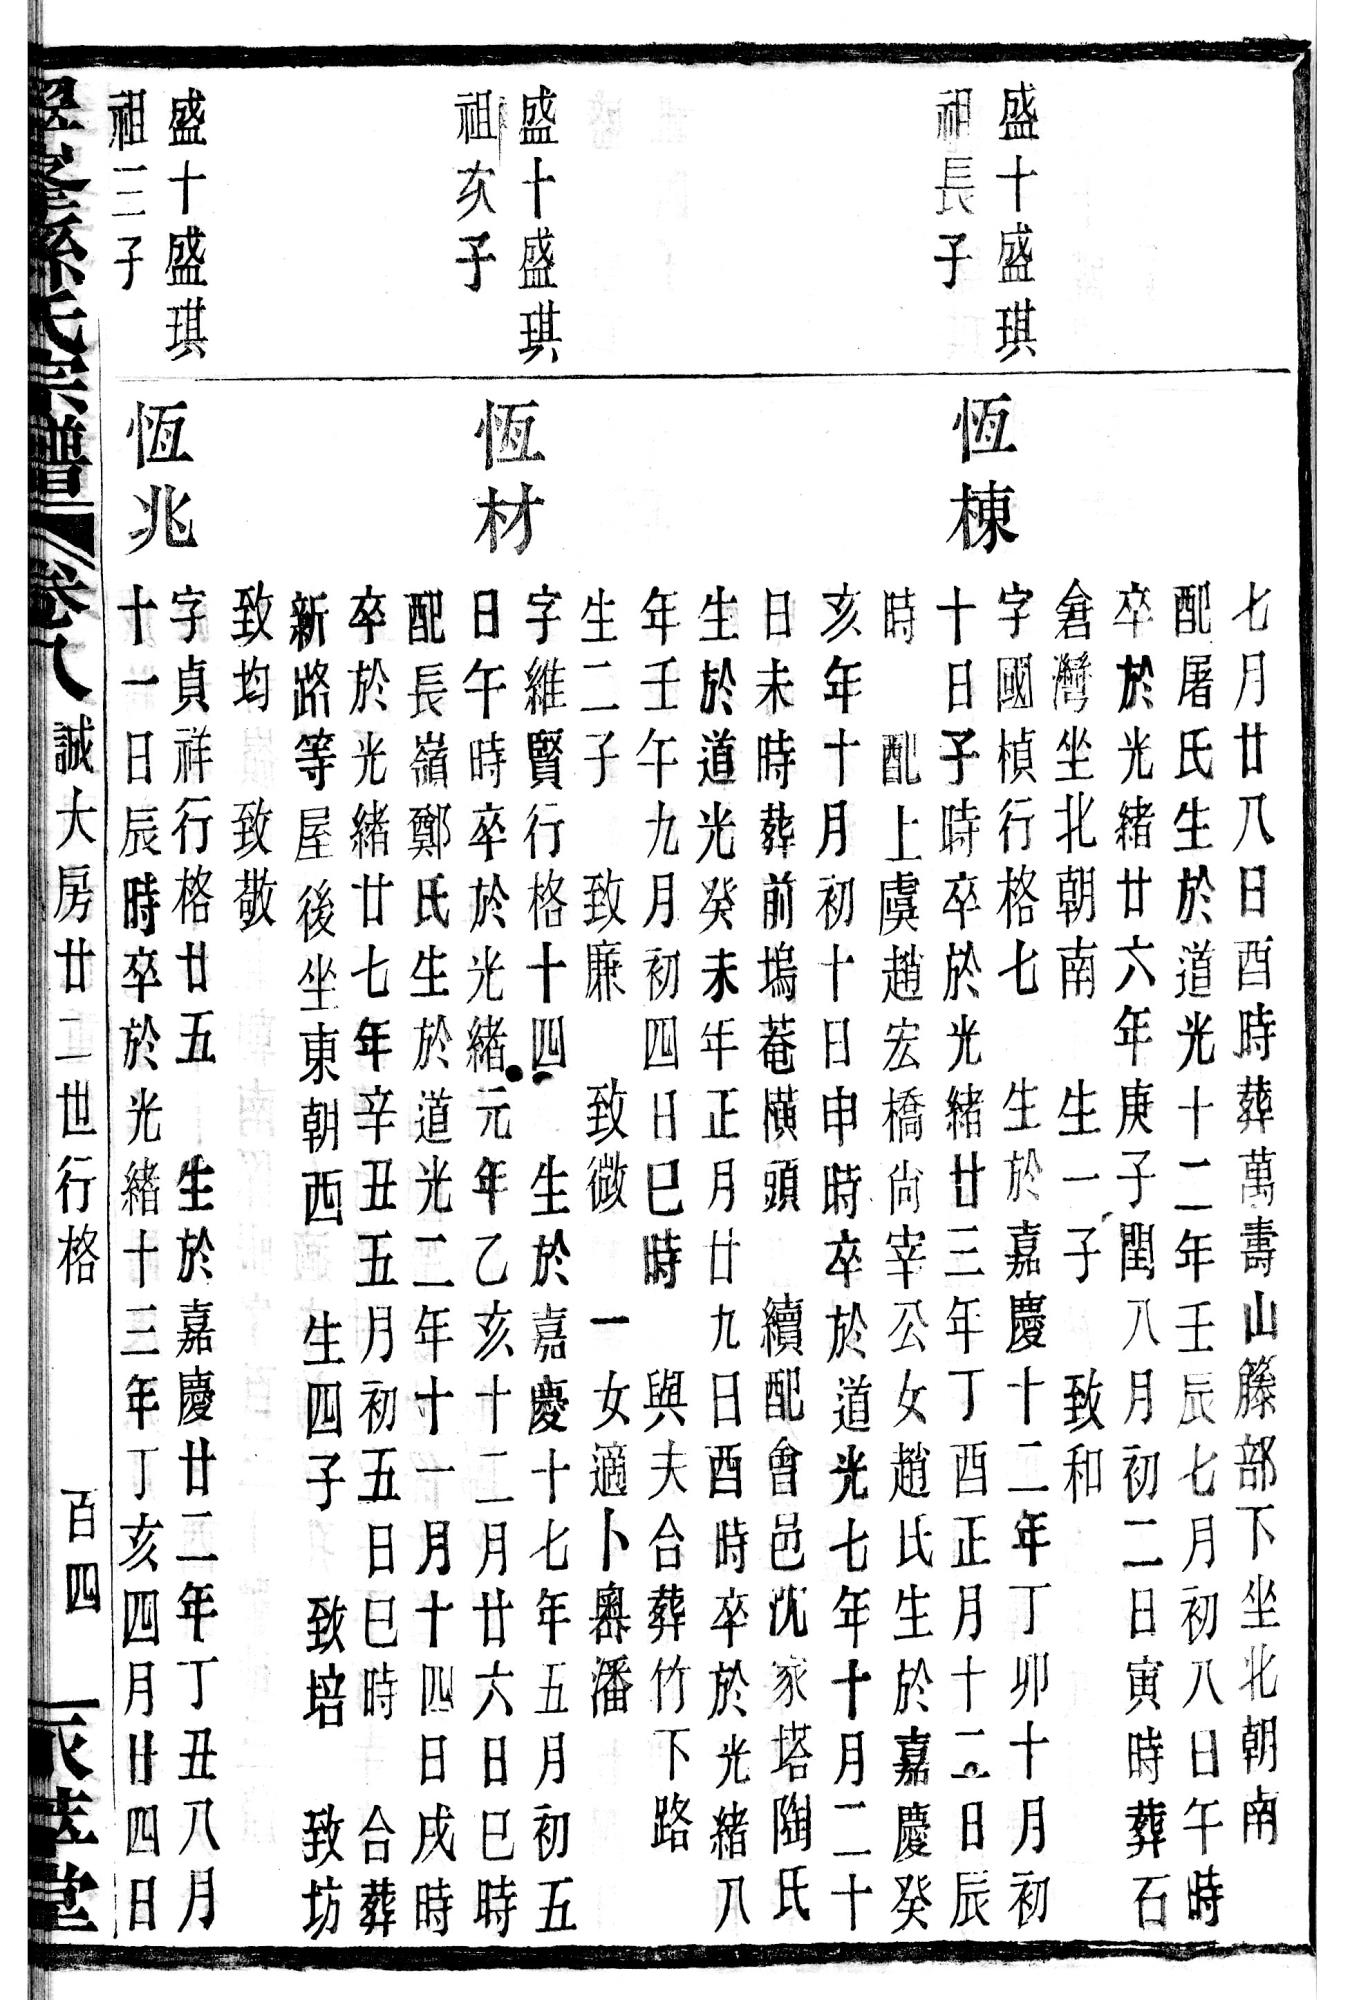 七月廿八日酉時葬萬壽山籐部下坐北朝南
配屠氏生於道光十二年壬辰七月初八日午時
卒於光緒廿六年庚子閏八月初二日寅時葬石
倉灣坐北朝南　生一子　致和
盛十盛琪
祖長子
恆棟
字國楨行格七　生於嘉慶十二年丁卯十月初
十日子時卒於光緒廿三年丁酉正月十二日辰
時　配上虞趙宏橋尚宰公女趙氏生於嘉慶癸
亥年十月初十日申時卒於道光七年十月二十
日未時葬前塢菴橫頭　續配會邑沈家塔陶氏
生於道光癸未年正月廿九日酉時卒於光緒八
年壬午九月初四日巳時　與夫合葬竹下路
生二子　致廉　致微　一女適卜嶴潘
盛十盛琪
祖次子
恆材
字維賢行格十四　生於嘉慶十七年五月初五
日午時卒於光緒元年乙亥十二月廿六日巳時
配長嶺鄭氏生於道光二年十一月十四日戌時
卒於光緒廿七年辛丑五月初五日巳時　合葬
新路等屋後坐東朝西　生四子　致培　致坊
致均　致敬
盛十盛琪
祖三子
恆兆
字貞祥行格廿五　生於嘉慶廿二年丁丑八月
十一日辰時卒於光緒十三年丁亥四月廿四日
孫氏宗譜　卷八　誠大房廿二世行格　百四　堂